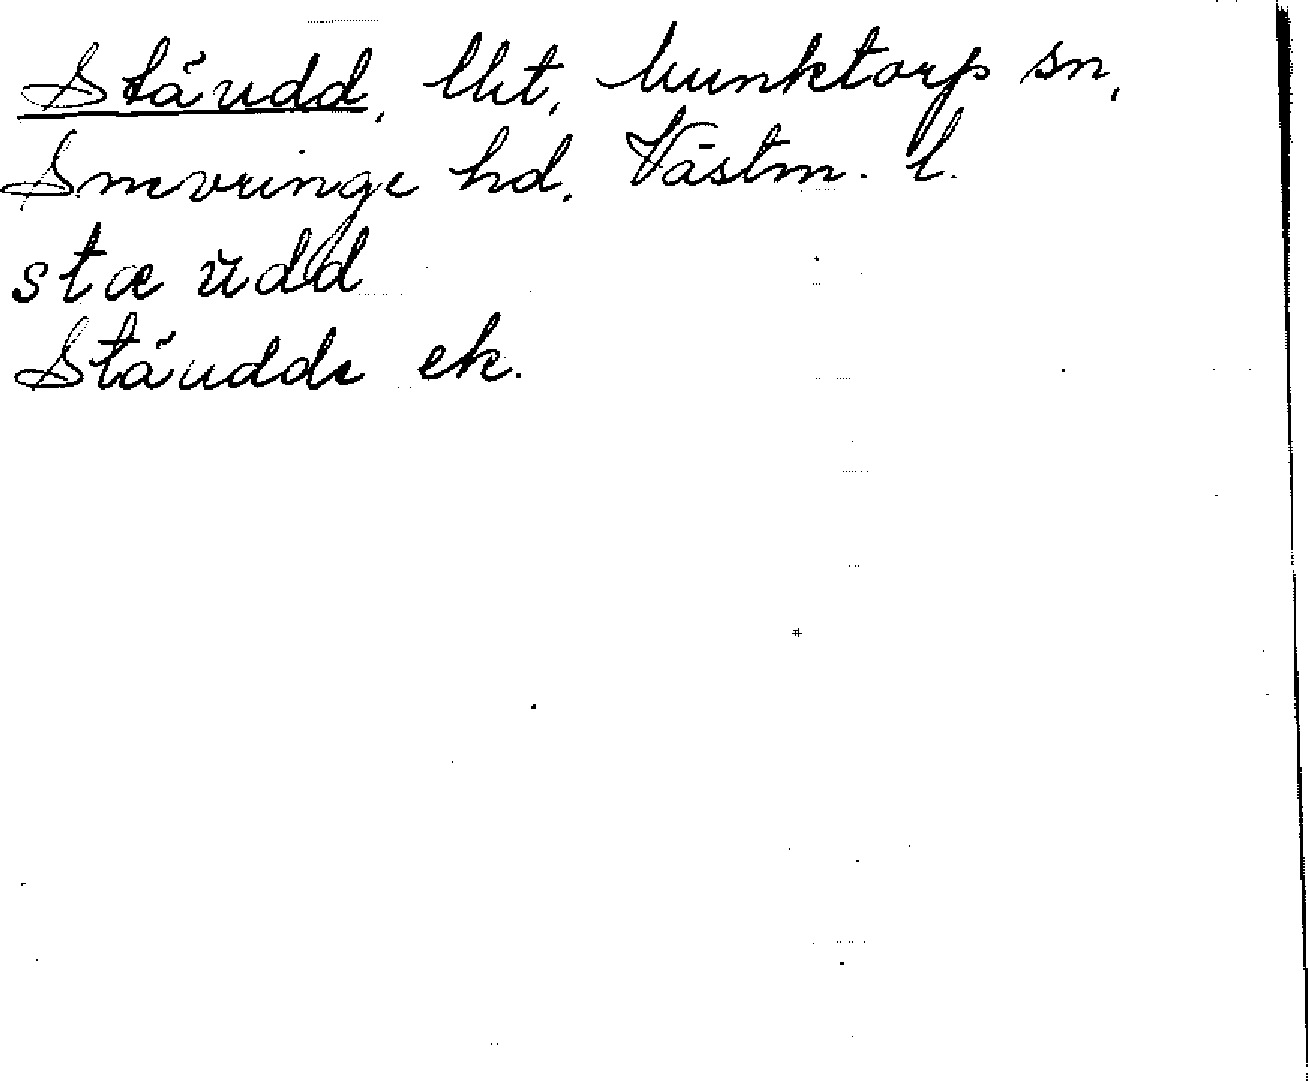 Stäudd, lht, Munktorp sn,
Snevringe hd. Västm. l.
stæ ŭdd
Stäudds ek.